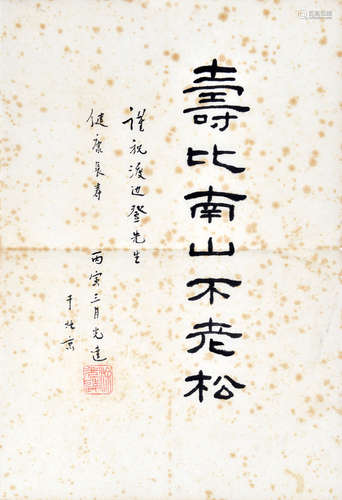 壽比南山不老松
謹祝渡边登先生
健康長寿
丙寅三月光達
于北京